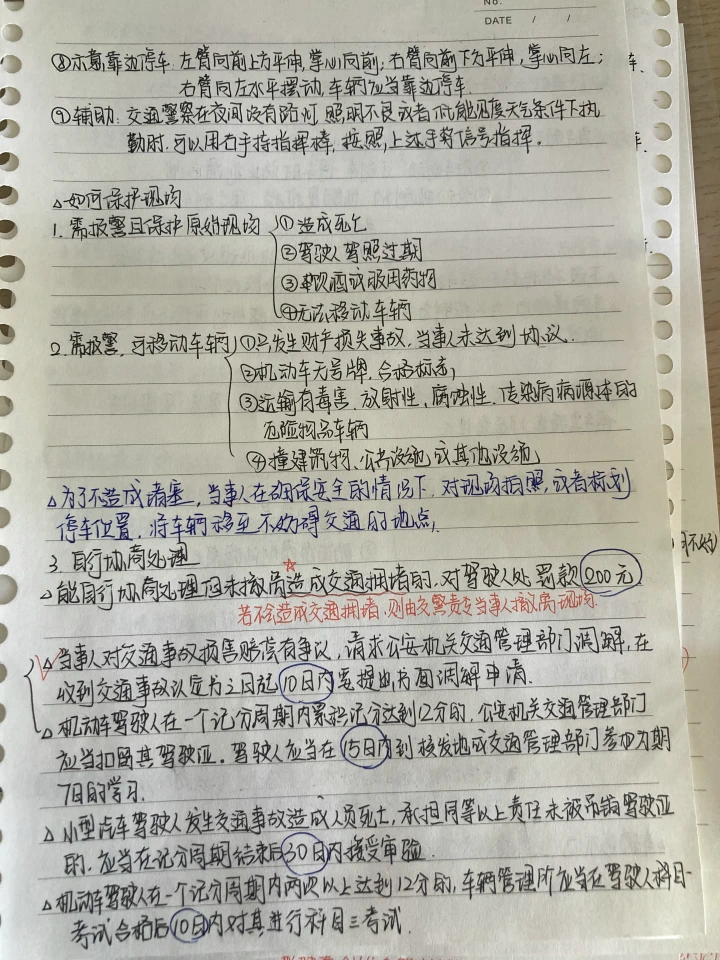 No.
DATE / /
⑧示意靠边停车:左臂向前上方平伸,掌心向前;右臂向前下方平伸,掌心向左;
右臂向左水平摆动,车辆应当靠边停车.
⑨辅助:交通警察在夜间没有路灯,照明不良或者低能见度天气条件下执
勤时,可以用右手持指挥棒,按照上述手势信号指挥.
△如何保护现场
1.需报警且保护原始现场 ①造成死亡
②驾驶人驾照过期
③喝酒或服用药物
④无法移动车辆
2.需报警,可移动车辆 ①只发生财产损失事故,当事人未达到协议.
②机动车无号牌,合格标志,
③运输有毒害、放射性、腐蚀性、传染病病源体的
危险物品车辆
④撞建筑物、公共设施或其他设施
△为了不造成堵塞,当事人在确保安全的情况下,对现场拍照,或者标划
停车位置,将车辆移至不妨碍交通的地点,
3.自行协商处理
△能自行协商处理但未撤离造成交通拥堵的,对驾驶人处罚款200元
若不会造成交通拥堵,则由交警责令当事人撤离现场.
△当事人对交通事故损害赔偿有争议,请求公安机关交通管理部门调解,在
收到交通事故认定书之日起10日内要提出书面调解申请.
△机动车驾驶人在一个记分周期内累积记分达到12分的,公安机关交通管理部门
应当扣留其驾驶证.驾驶人应当在15日内到核发地或交通管理部门参加为期
7日的学习.
△小型汽车驾驶人发生交通事故造成人员死亡,承担同等以上责任未被吊销驾驶证
的,应当在记分周期结束后30日内接受审验.
△机动车驾驶人在一个记分周期内两次以上达到12分的,车辆管理所应当在驾驶人科目一
考试合格后10日内对其进行科目三考试.